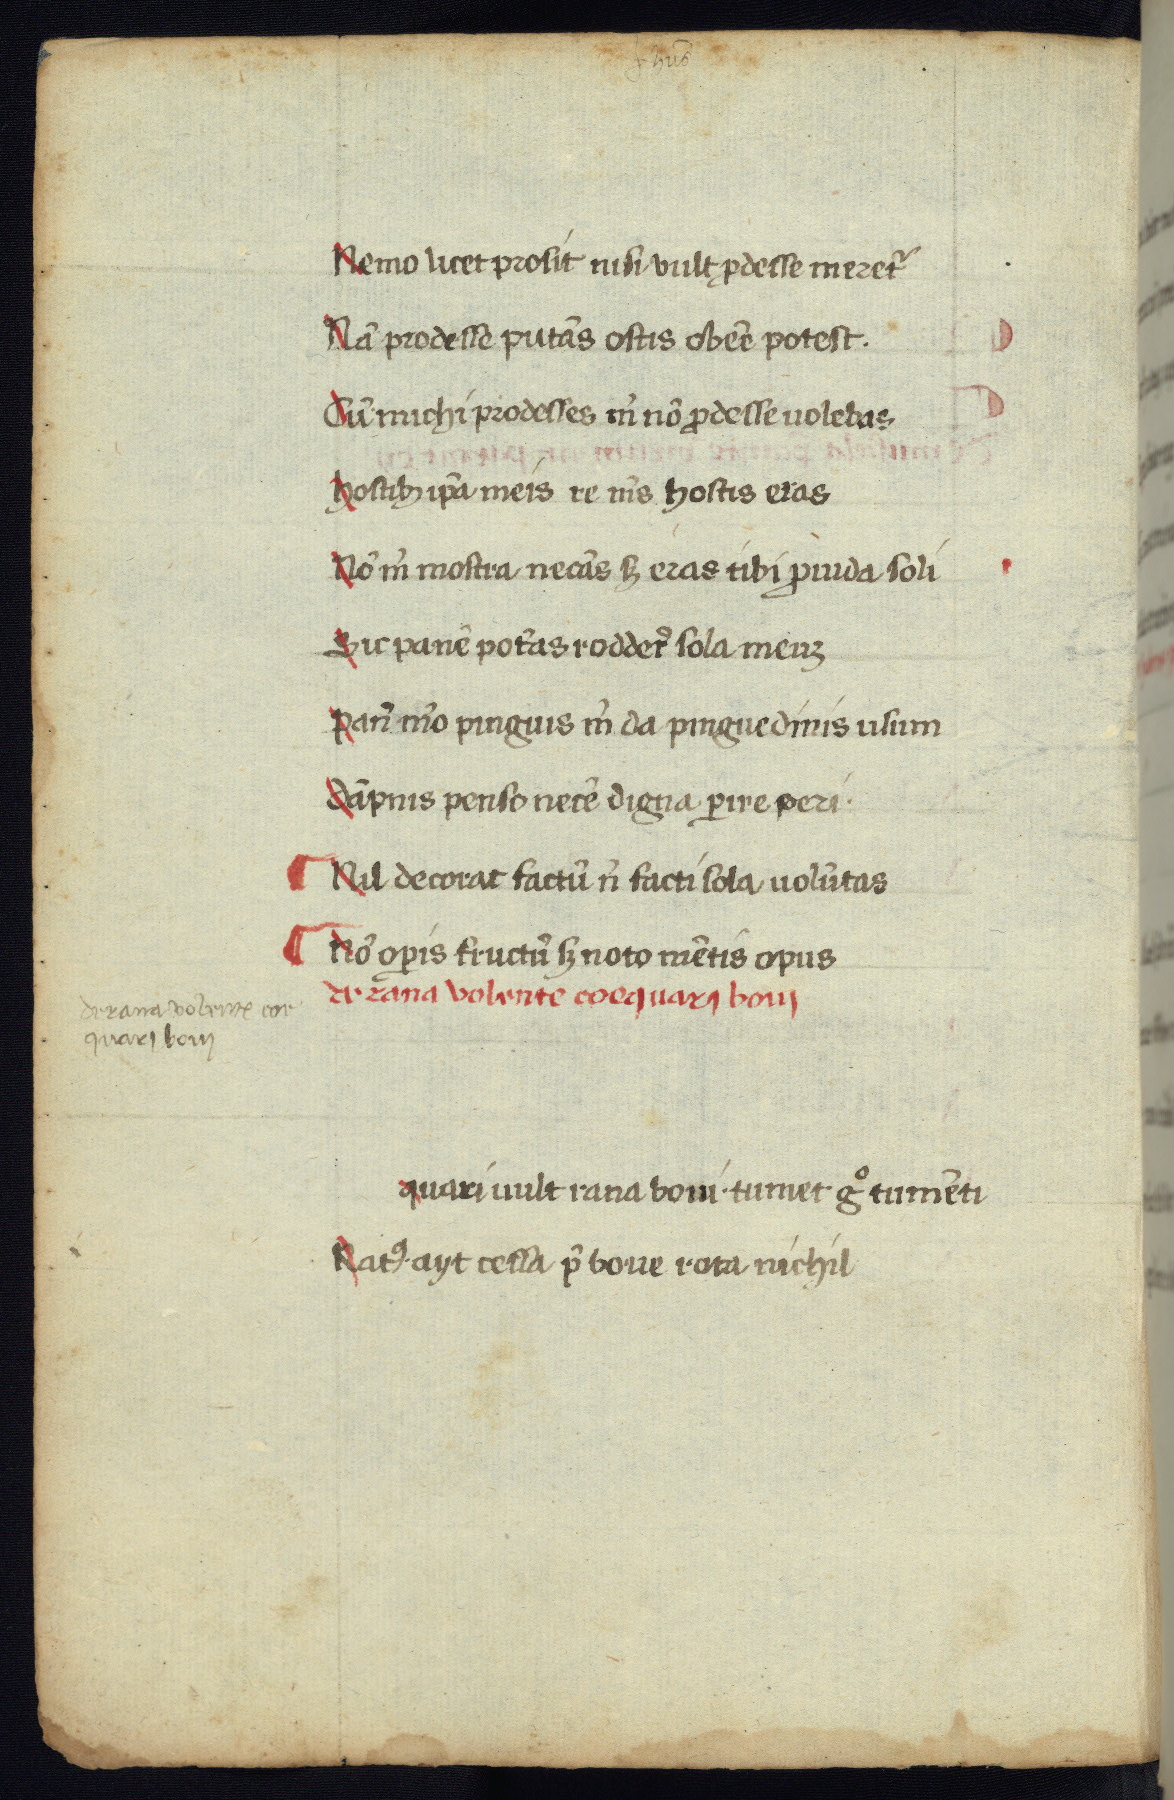 Nemo licet prosit nisi vult ꝓdesse meret᷑
Nā prodesse putās ostis obēe potest.
Cū michi prodesses m̄ nō ꝓdesse uolebas
hostibꝫ ip̄a meis re m̄s hostis eras
Nō m̄ mostra necās sꝫ eras tibi ꝓuida soli
Sic panē pot̄as rodder̄ sola meuꝫ
Pan̄ m̄o pinguis m̄ da pinguedinis usum
Dāpnis penso necē digna ꝑire peri.
Nil decorat factū n̄ facti sola uolūtas
Nō oꝑis fructū sꝫ noto mētis opus
de rana volente coequarj bouj
de rana volente coe
quarj bouj
quari uult rana boui tumet gͦ tumēti
Natꝰ ayt cessa ꝓ boue rota nichil